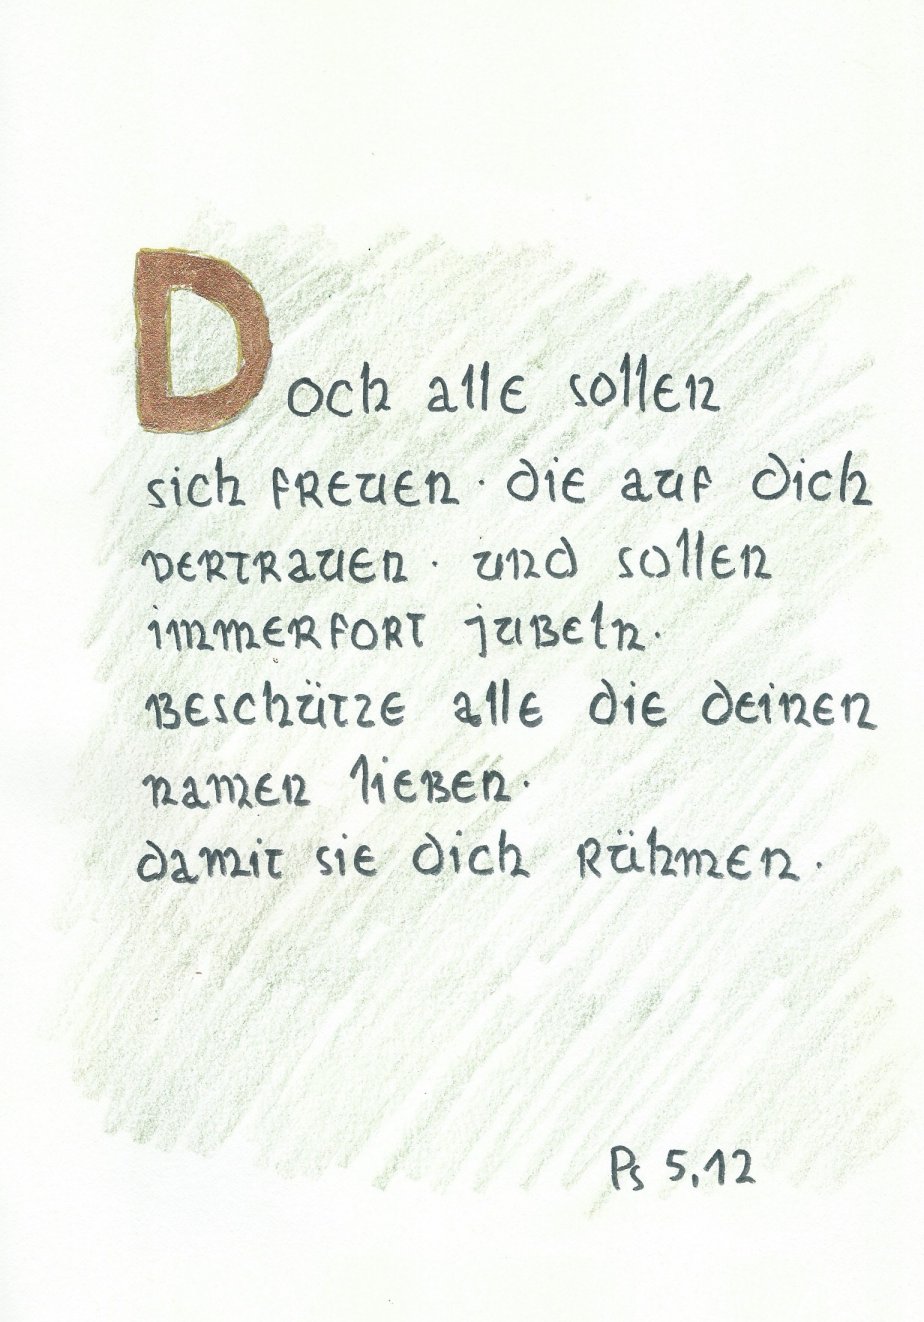 Doch alle sollen
sich freuen · die auf dich
vertrauen · und sollen
immerfort jubeln ·
Beschütze alle die deinen
namen lieben ·
damit sie dich Rühmen ·
Ps 5,12